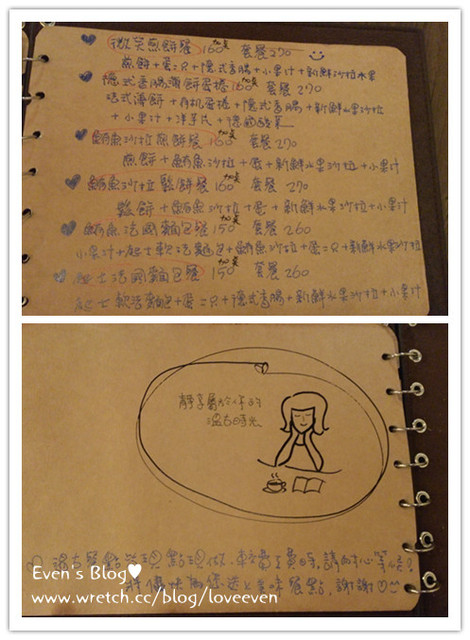 微笑煎餅餐 160 加蛋 套餐 270
煎餅+蛋二只+德式香腸+小果汁+新鮮沙拉水果
德式香腸薄餅蛋捲 160 加蛋 套餐 270
法式薄餅+有机蛋捲+德式香腸+新鮮水果沙拉
+小果汁+洋芋片+德國酸菜
鮪魚沙拉煎餅餐 160 加蛋 套餐 270
煎餅+鮪魚沙拉+蛋+新鮮水果沙拉+小果汁
鮪魚沙拉鬆餅餐 160 加蛋 套餐 270
鬆餅+鮪魚沙拉+蛋+新鮮水果沙拉+小果汁
鮪魚法國麵包餐 150 加蛋 套餐 260
小果汁+起士軟法麵包+鮪魚沙拉+蛋二只+新鮮水果沙拉
起士法國麵包餐 150 加蛋 套餐 260
起士軟法麵包+蛋二只+德式香腸+新鮮水果沙拉+小果汁
靜享屬於你的
溫古時光
溫古餐點皆現點現做，較需要費時，請耐心等候！
將儘快為您送上美味餐點，謝謝
Even's Blog♥
www.wretch.cc/blog/loveeven